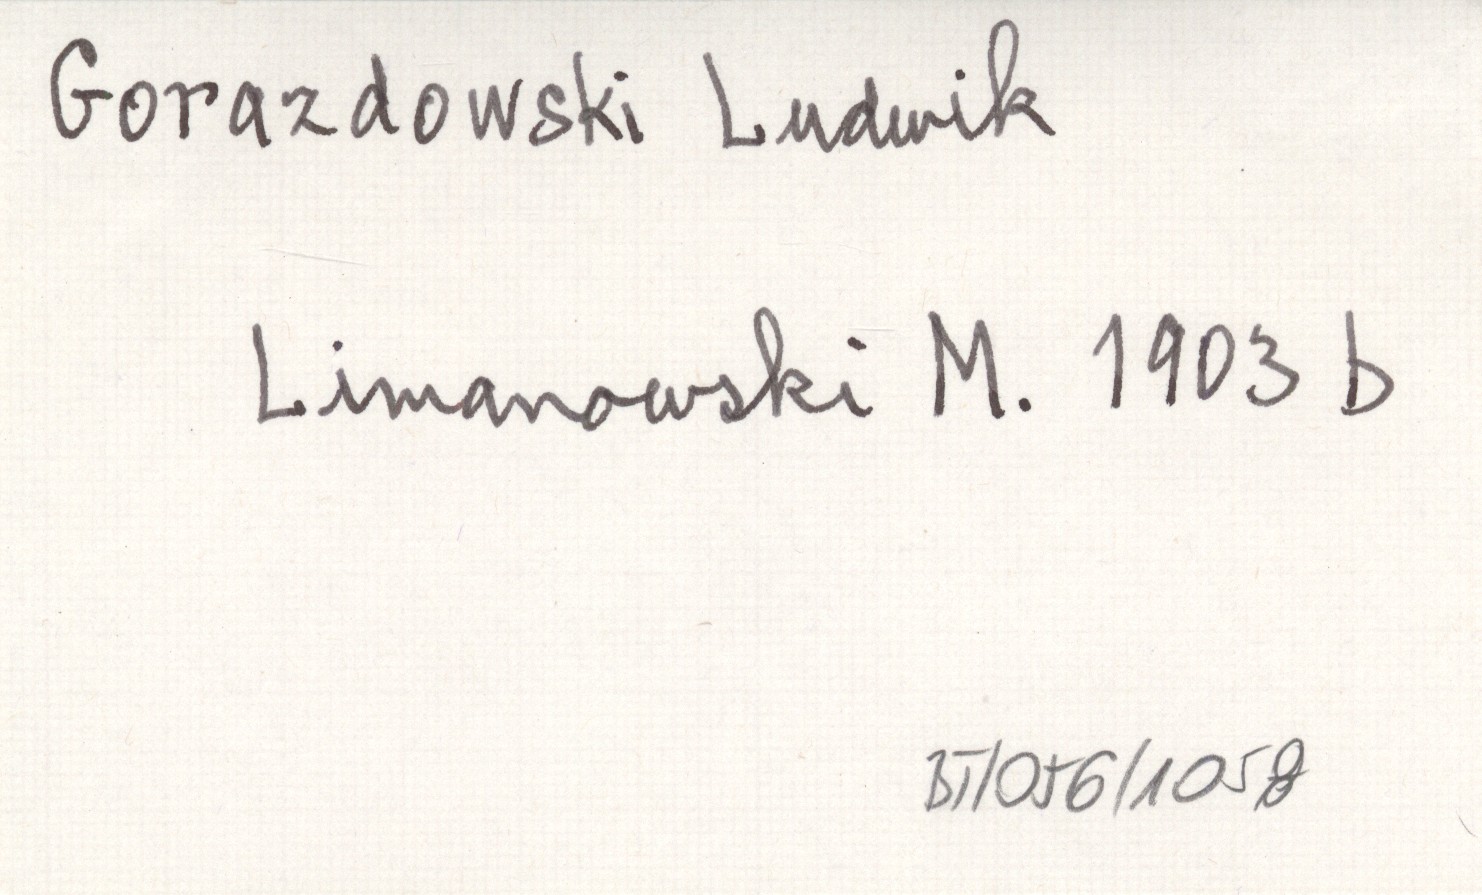 Gorazdowski Ludwik
Limanowski M. 1903 b
BT/056/1058